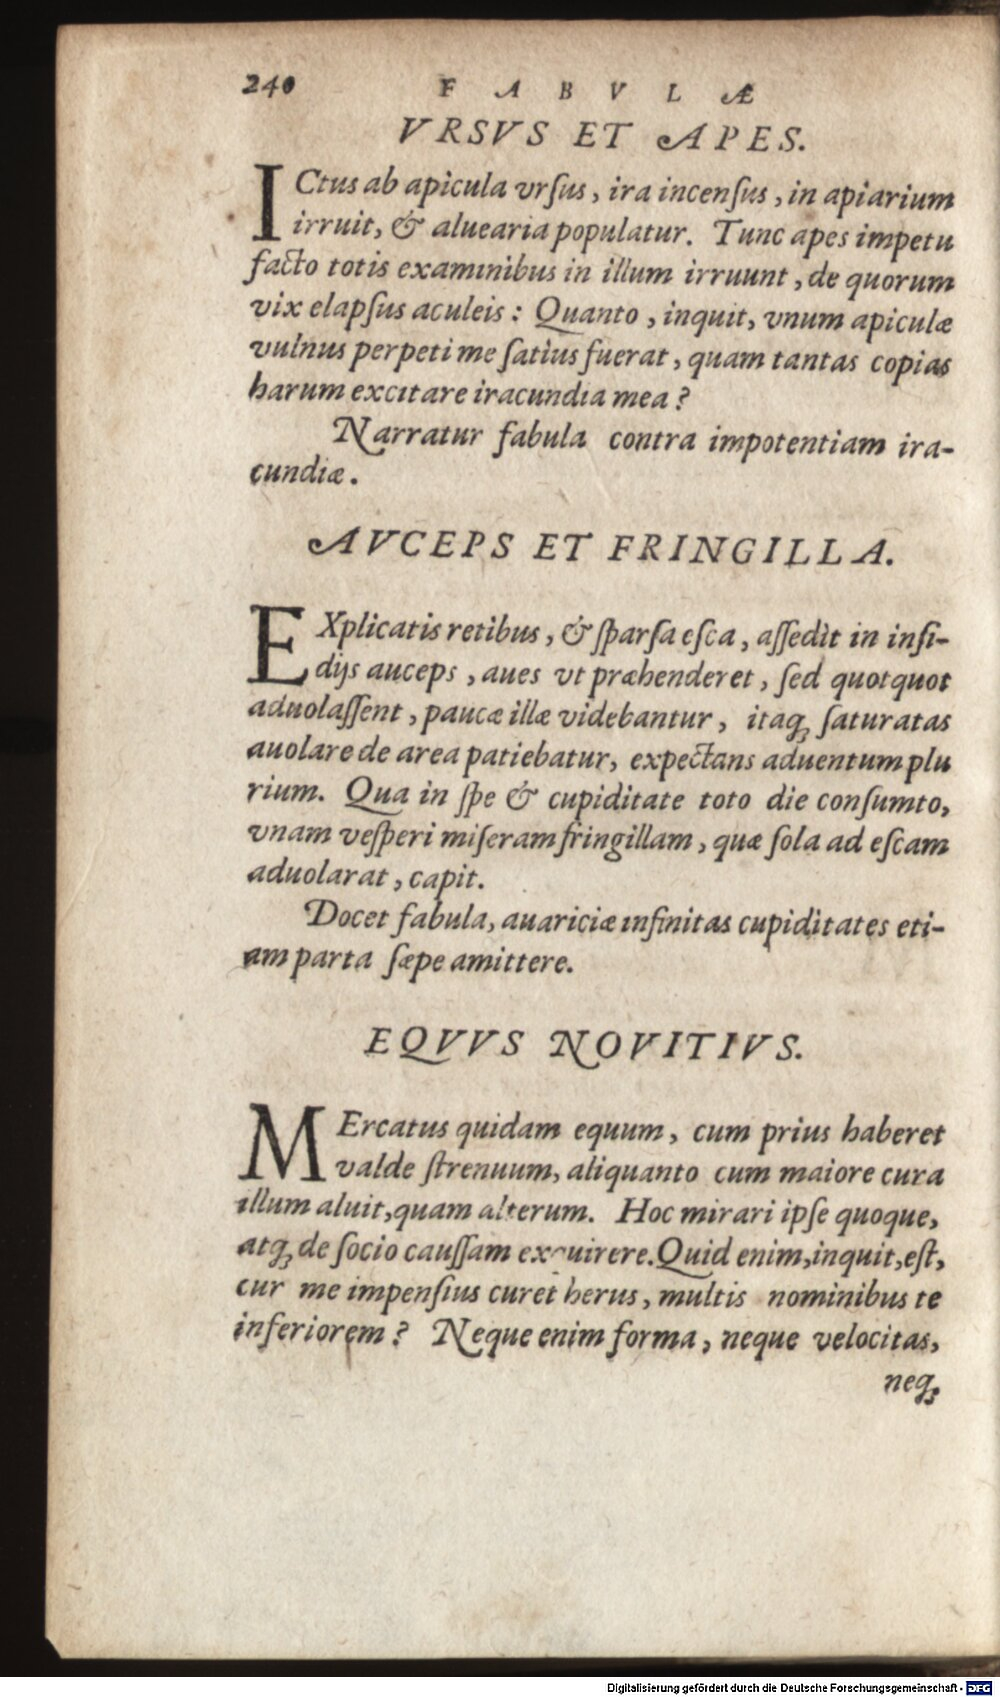 240 FABVLÆ
VRSVS ET APES.
ICtus ab apicula vrſus, ira incenſus, in apiarium
irruit, & aluearia populatur. Tunc apes impetu
facto totis examinibus in illum irruunt, de quorum
vix elapſus aculeis: Quanto, inquit, vnum apiculæ
vulnus perpeti me ſatius fuerat, quam tantas copias
harum excitare iracundia mea?
Narratur fabula contra impotentiam ira-
cundiæ.
AVCEPS ET FRINGILLA.
EXplicatis retibus, & ſparſa eſca, aſſedit in inſi-
dijs auceps, aues vt præhenderet, ſed quotquot
aduolaſſent, paucæ illæ videbantur, itaq; ſaturatas
auolare de area patiebatur, expectans aduentum plu
rium. Qua in ſpe & cupiditate toto die conſumto,
vnam veſperi miſeram fringillam, quæ ſola ad eſcam
aduolarat, capit.
Docet fabula, auariciæ infinitas cupiditates eti-
am parta ſæpe amittere.
EQVVS NOVITIVS.
MErcatus quidam equum, cum prius haberet
valde ſtrenuum, aliquanto cum maiore cura
illum aluit, quam alterum. Hoc mirari ipſe quoque,
atq; de ſocio cauſſam exquirere. Quid enim, inquit, eſt,
cur me impenſius curet herus, multis nominibus te
inferiorem? Neque enim forma, neque velocitas,
neq;
Digitalisierung gefördert durch die Deutsche Forschungsgemeinschaft - DFG